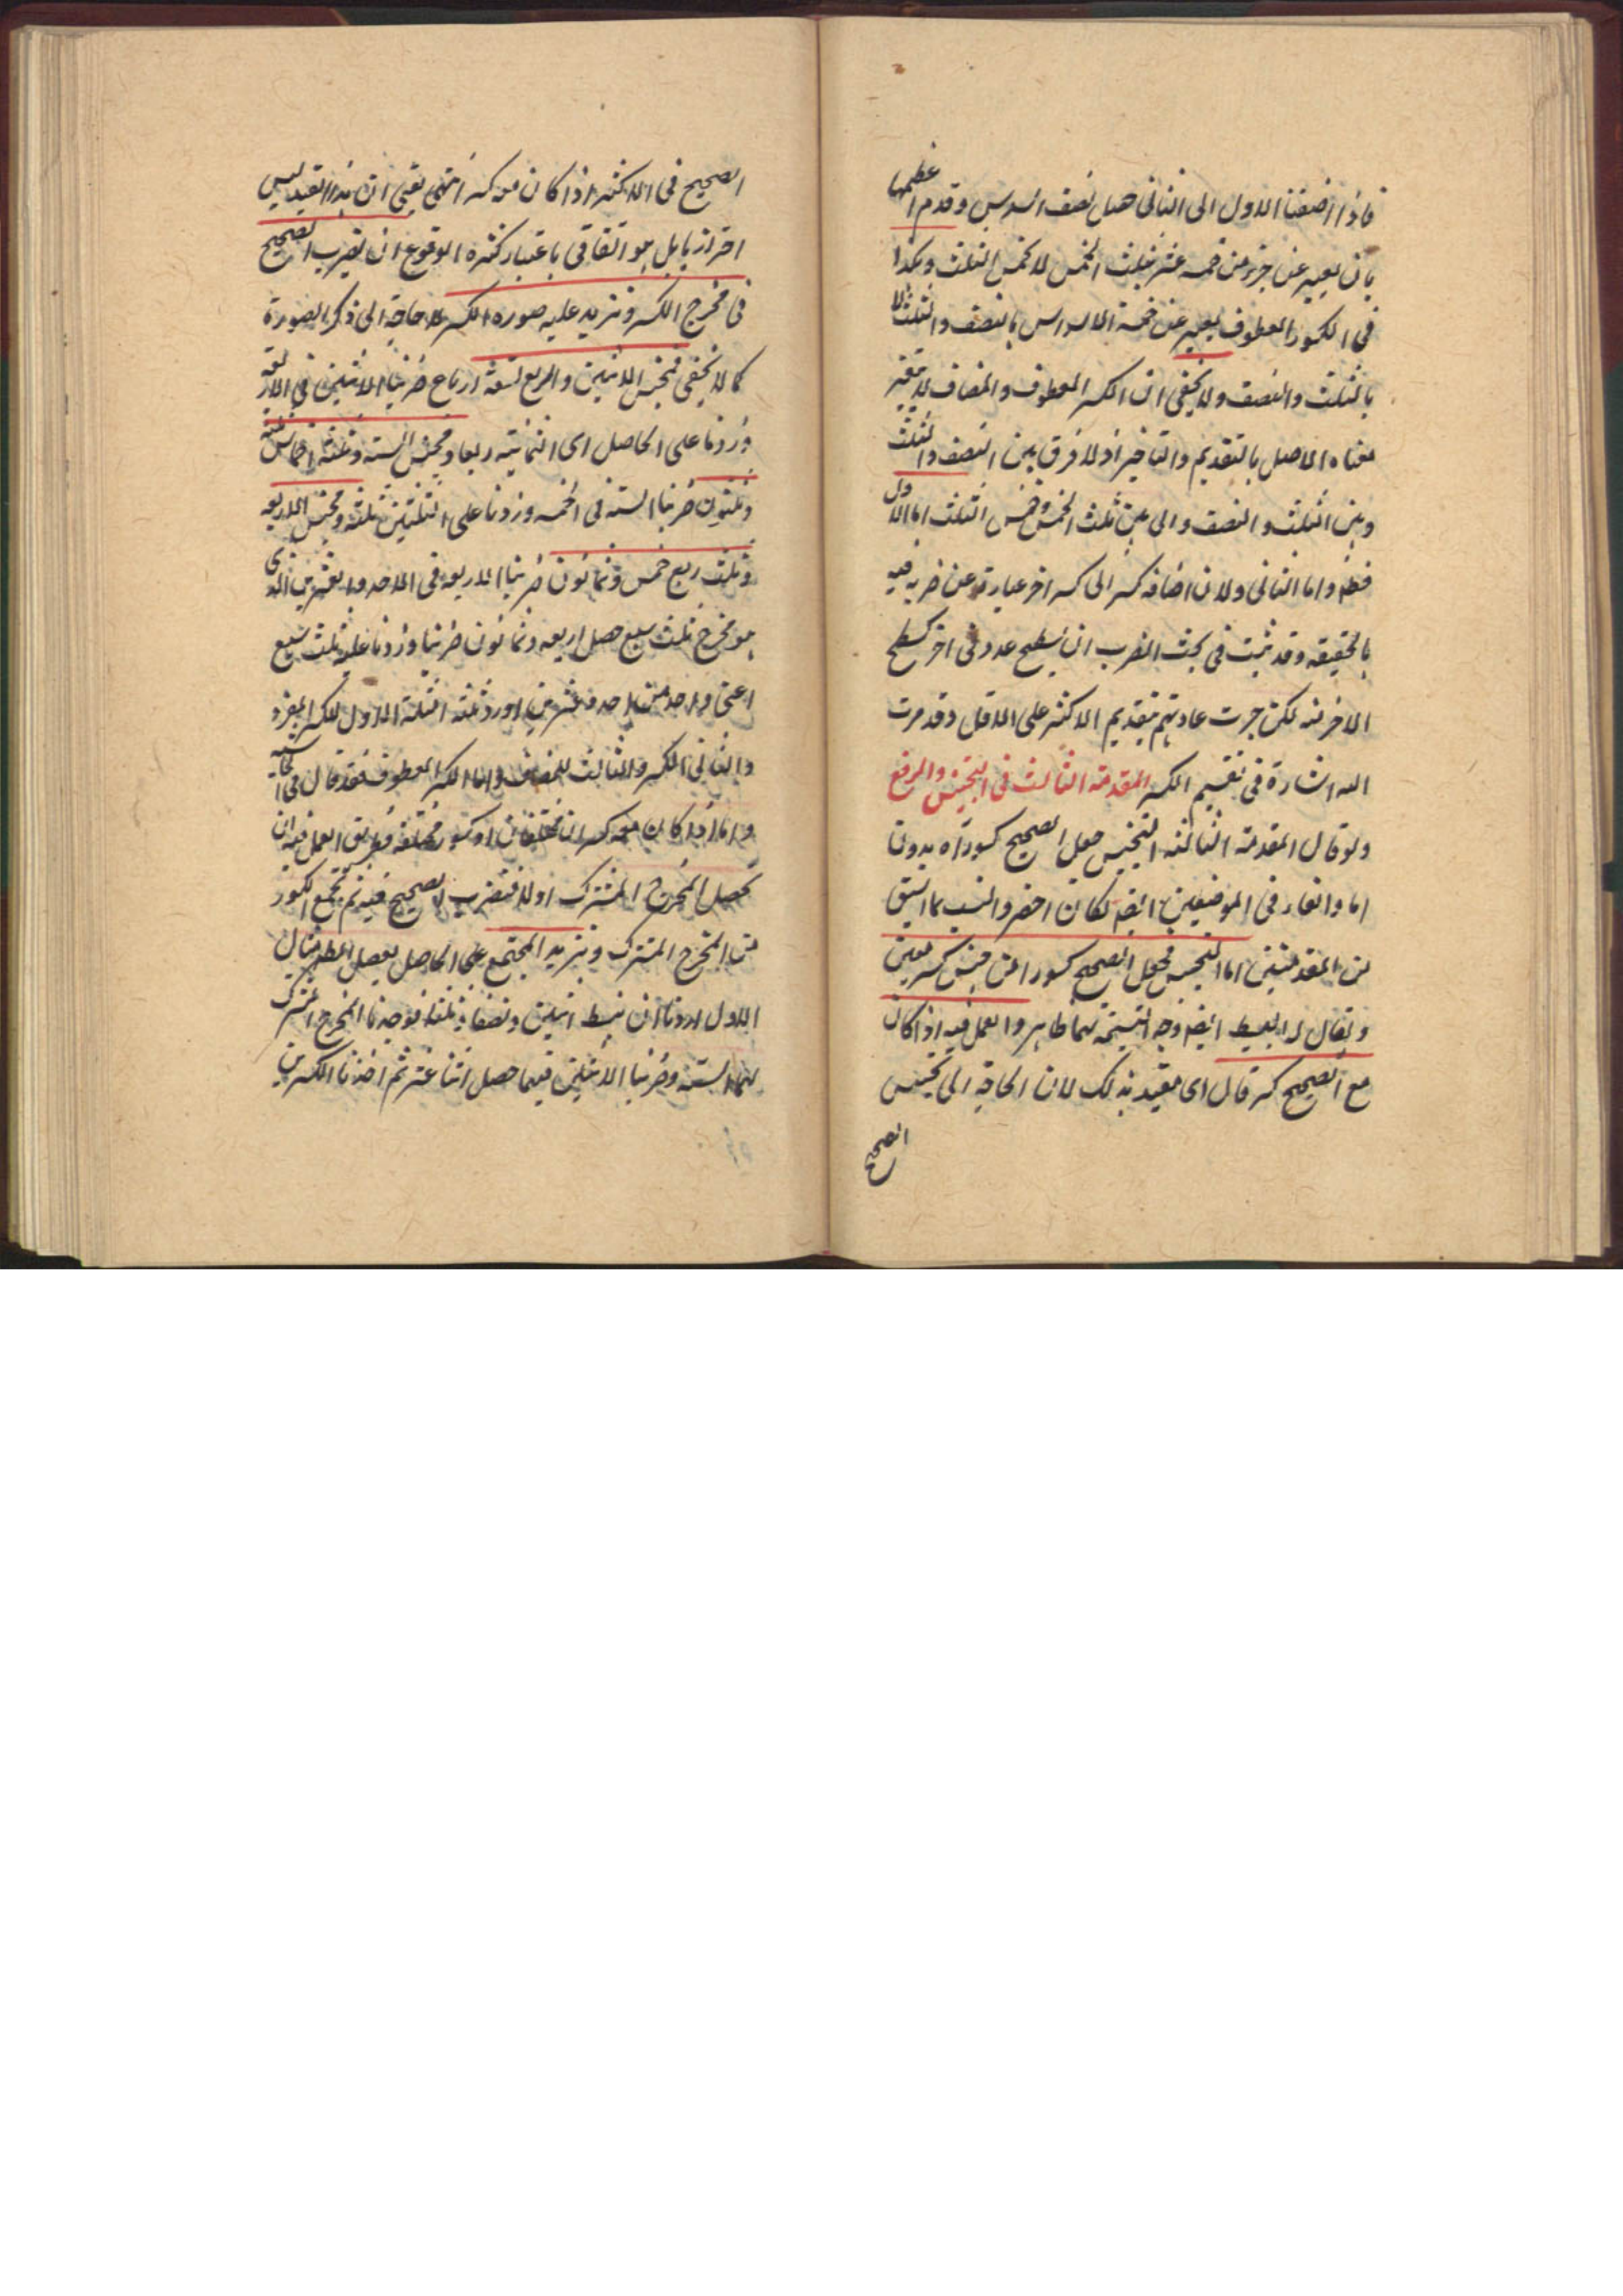 فاذا اضفنا الاول الى الثانى حصل نصف السدس وقدم اعظمها
بان يعبر عن جزء من خمسة عشر بثلث الخمس لا بخمس الثلث وهكذا
فى الكسور المعطوف يعبر عن خمسة الاسداس بالنصف والثلث لا
بالثلث والنصف ولا يخفى ان الكسر المعطوف والمضاف لا يتغير
معناه الاصل بالتقديم والتاخير اذ لا فرق بين النصف والثلث
وبين الثلث والنصف والى بين ثلث الخمس وخمس الثلث اما الاول
فظ واما الثانى ولان اضافة كسر الى كسر اخر عبارة عن ضربه فيه
بالحقيقة وقد ثبت فى بحث الضرب ان تسطيح عدد فى اخر كسطح
الاخر فيه لكن جرت عادتهم بتقديم الاكثر على الاقل وقد مرت
اليه اشارة فى تقسيم الكسر المقدمة الثالثة فى التجنيس والرفع
ولو قال المقدمة الثالثة التجنيس جعل الصحيح كسورا ه بدون
اما والفاء فى الموضعين ايضا لكان اخصر وانسب بما سبق
من المقدمتين اما التجنيس فجعل الصحيح كسورا من جنس كسر معين
ويقال له البسيط ايضا وجه التسمية بهما ظاهر والعمل فيه اذا كان
مع الصحيح كسر قال اى مقيد بذلك لان الحاجة الى تجنيس
الصحيح
الصحيح فى الاكثر اذا كان معه كسر انتهى يعنى ان هذا القيد ليس
احترازيا بل هو اتفاقى باعتبار كثرة الوقوع ان تضرب الصحيح
فى مخرج الكسر وتزيد عليه صورة الكسر لا حاجة الى ذكر الصورة
كما لا يخفى فمجنس الاثنين والربع تسعة ارباع ضربنا الاثنين فى الاربعة
وزدنا على الحاصل اى الثمانية ربعا ومجنس الستة وثلثة اخماس ثلثة
وثلثون ضربنا الستة فى الخمسة وزدنا على الثلثين ثلثة ومجنس الاربعة
وثلث سبع خمس وثمانون ضربنا الاربعة فى الاحد والعشرين الذى
هو مخرج ثلث سبع حصل اربعة وثمانون ضربنا وزدنا عليه ثلث سبع
اعنى واحد من احد وعشرين اورد ثلثة امثلة الاول للكسر المفرد
والثانى المكرر والثالث للمضاف واما الكسر المعطوف فقد قال فى الحاشية
واما اذا كان معه كسران مختلفان او كسور مختلفة فطريق العمل فيه ان
تحصل المخرج المشترك اولا فتضرب الصحيح فيه ثم تجمع الكسور
من المخرج المشترك وتزيد المجتمع على الحاصل يحصل المط مثال
الاول اردنا ان نبسط اثنين ونصفا وثلثا فوجدنا المخرج المشترك
لهما الستة وضربنا الاثنين فيها حصل اثنا عشر ثم اخذنا الكسرين